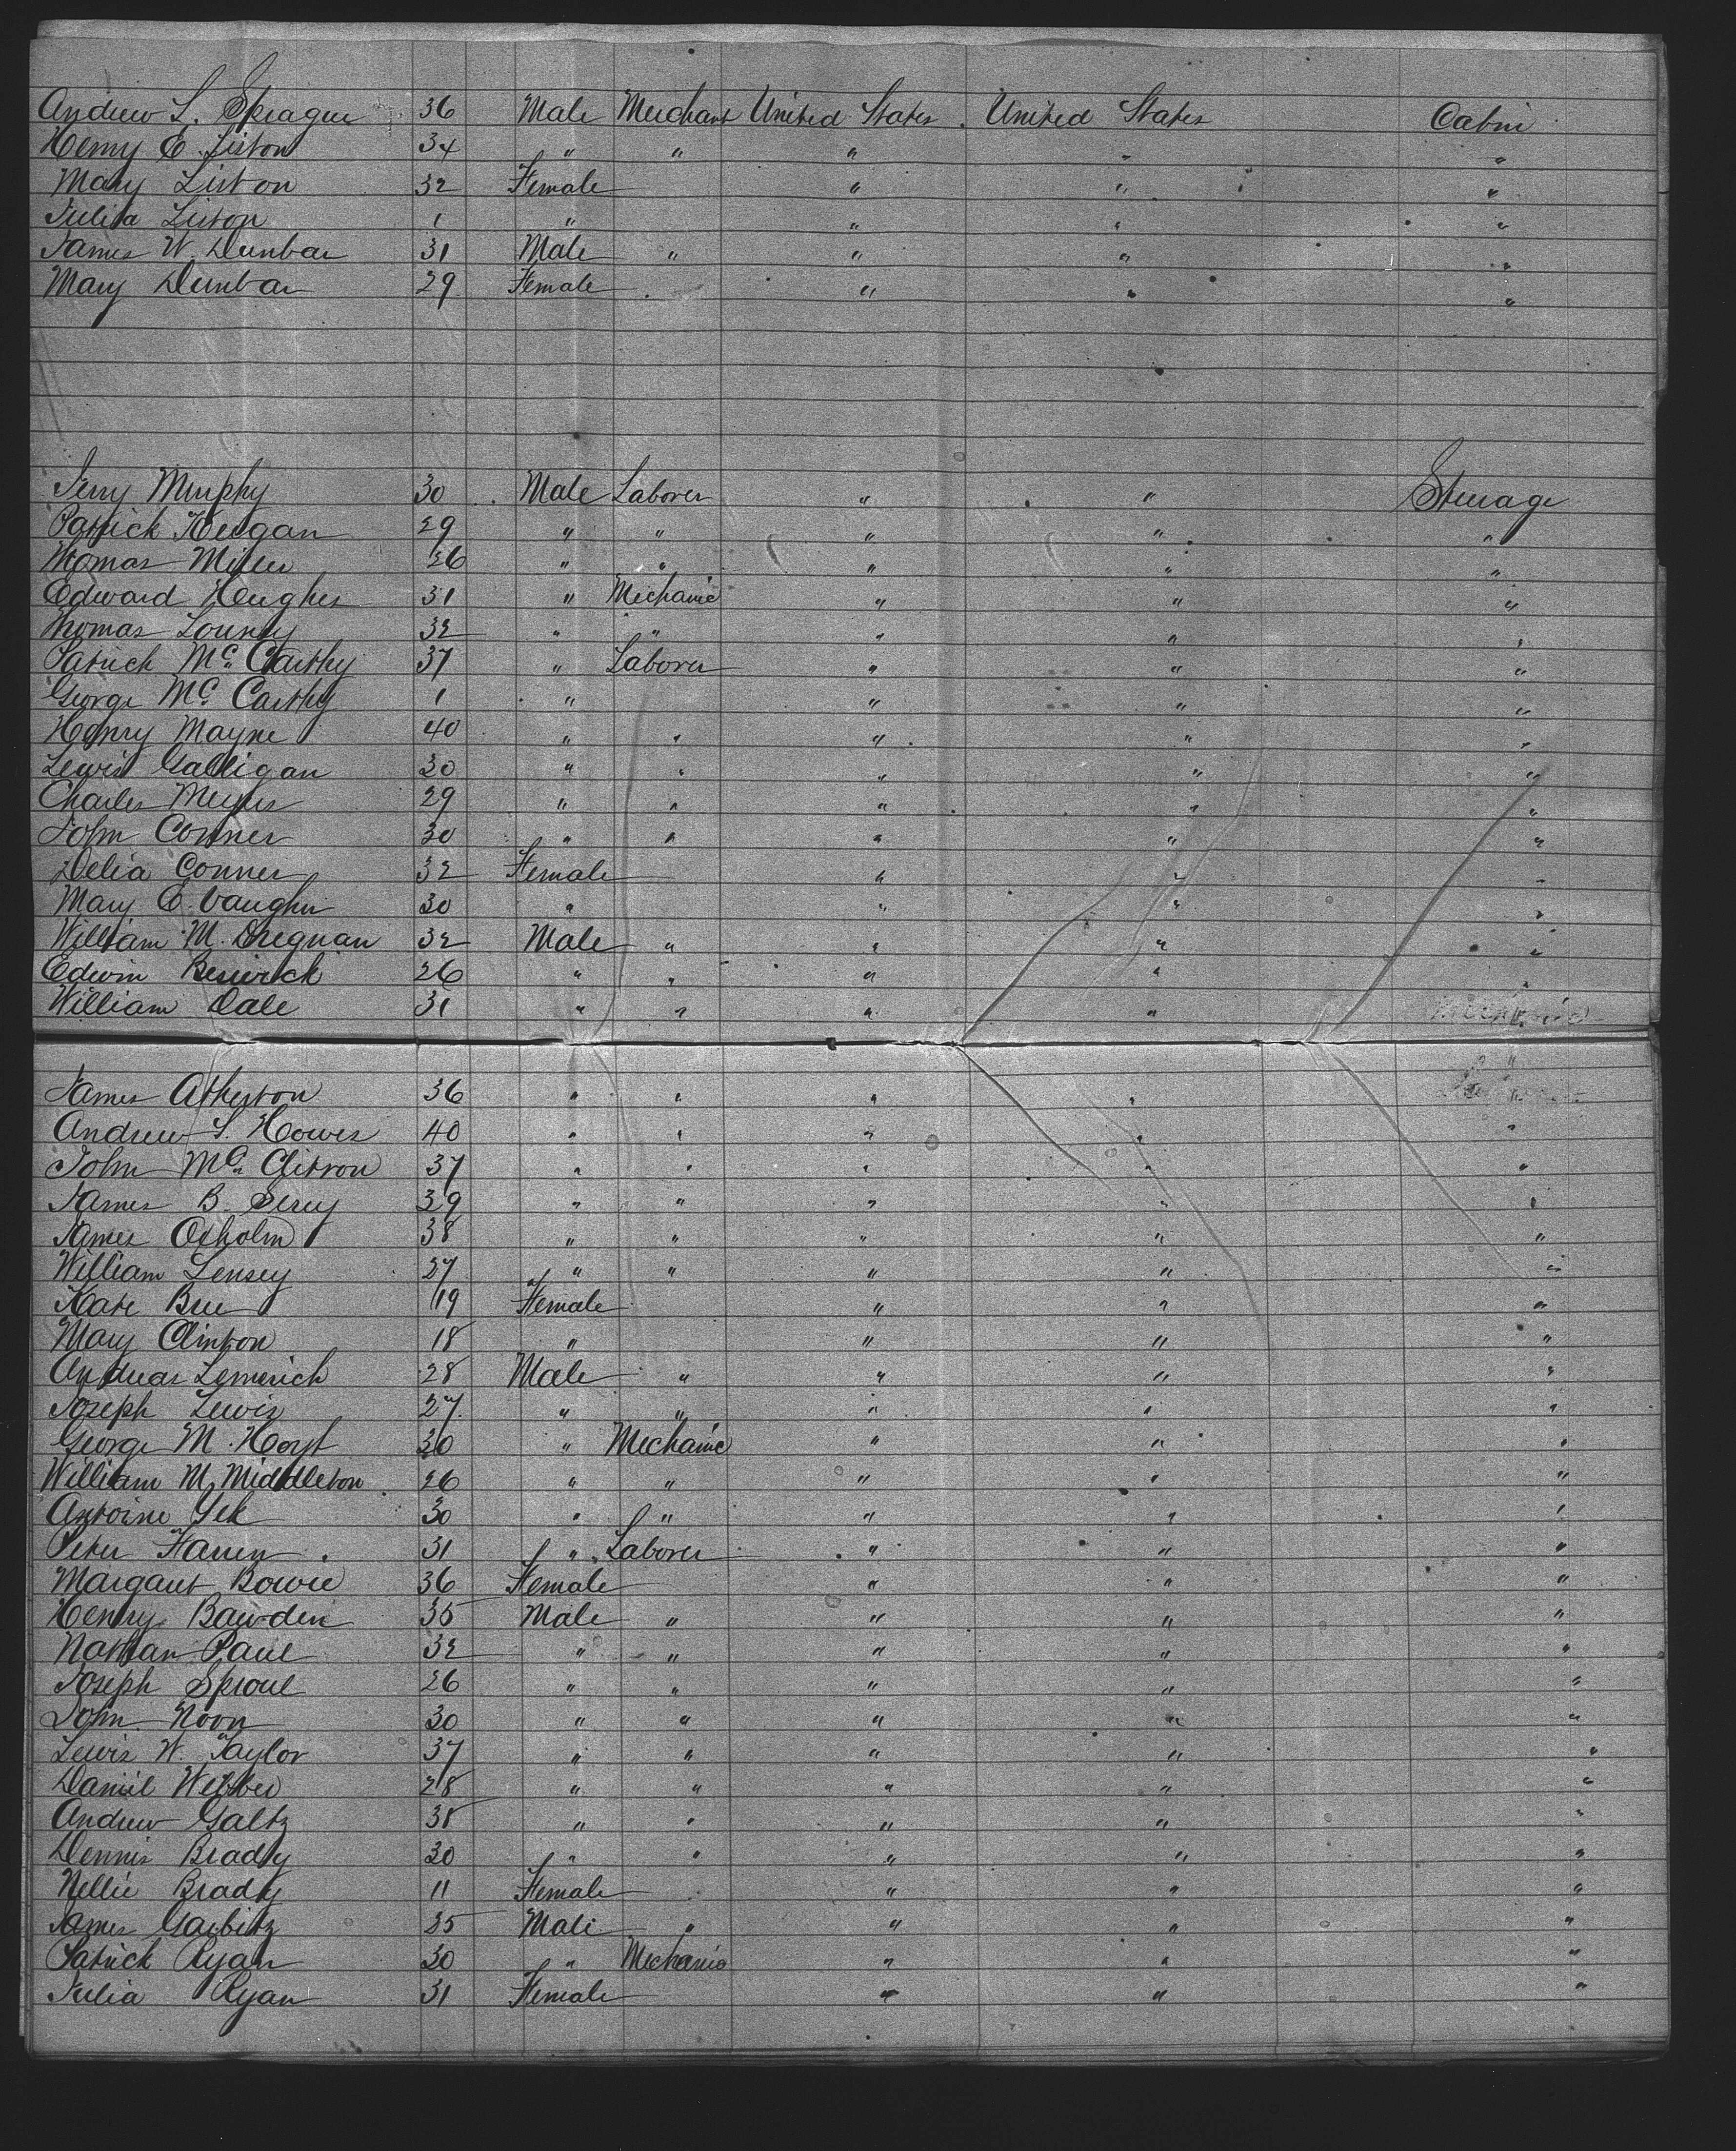 Andrew L. Sprague 36 Male Merchant United States United States Cabin
Henry E. Liston 34 " " " " "
Mary Liston 32 Female " " "
Julia Liston 1 " " " "
James W. Dunbar 31 Male " " " "
Mary Dunbar 29 Female " " "
Jerry Murphy 30 Male Laborer " " Steerage
Patrick Keegan 29 " " " " "
Thomas Miller 26 " " " " "
Edward Hughes 31 " Mechanic " " "
Thomas Lounty 32 " " " " "
Patrick McCarthy 37 " Laborer " " "
George McCarthy 1 " " " "
Henry Mayne 40 " " " " "
Lewis Galligan 30 " " " " "
Charles Meyers 29 " " " " "
John Conner 30 " " " " "
Delia Conner 32 Female " " "
Mary E. Vaughn 30 " " " "
William M. Dregnan 32 Male " " " "
Edwin Beswick 26 " " " " "
William Dale 31 " " " " "
James Atherton 36 " " " " "
Andrew S. Howes 40 " " " " "
John Mc 37 " " " " "
James B. 39 " " " " "
James Oxholm 38 " " " " "
William Lensey 27 " " " " "
Kate Bree 19 Female " " "
Mary Clinton 18 " " " "
Andreas Lemerich 28 Male " " " "
Joseph Lewis 27 " " " " "
George M. Hoyt 30 " Mechanic " " "
William M. Middleton 26 " " " " "
Antoine 30 " " " " "
Peter 31 " Laborer " " "
Margaret Bowie 36 Female " " "
Henry Bawden 35 Male " " " "
Nathan Paul 32 " " " " "
Joseph Sproul 26 " " " " "
John Noon 30 " " " " "
Lewis W. Taylor 37 " " " " "
Daniel Webber 28 " " " " "
Andrew Galtz 38 " " " " "
Dennis Brady 30 " " " " "
Nellie Brady 11 Female " " "
James Garbitz 25 Male " " " "
Patrick Ryan 30 " Mechanic " " "
Julia Ryan 31 Female " " "